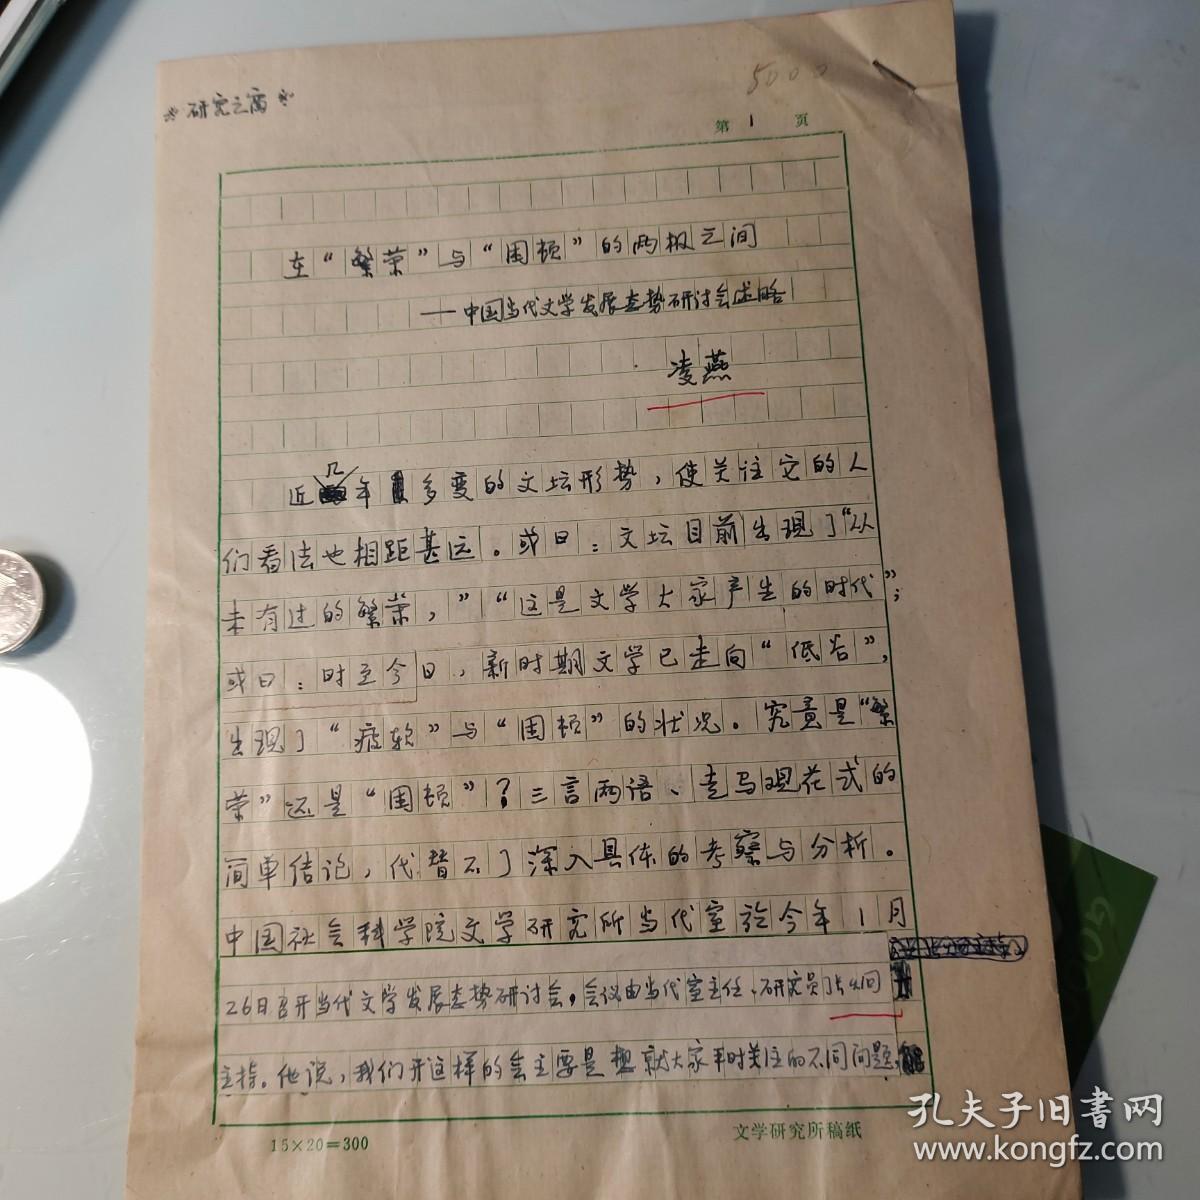 研究之窗
5000
第 1 页
在“繁荣”与“困顿”的两极之间
——中国当代文学发展态势研讨会述略
凌燕
近几年多变的文坛形势,使关注它的人
们看法也相距甚远。或曰:文坛目前出现了“从
未有过的繁荣,”“这是文学大家产生的时代”;
或曰:时至今日,新时期文学已走向“低谷”,
出现了“疲软”与“困顿”的状况。究竟是“繁
荣”还是“困顿”?三言两语、走马观花式的
简单结论,代替不了深入具体的考察与分析。
中国社会科学院文学研究所当代室於今年1月
26日召开当代文学发展态势研讨会。会议由当代室主任、研究员张炯
主持。他说,我们开这样的会主要是想就大家平时关注的不同问题
15×20=300
文学研究所稿纸
孔夫子旧书网
www.kongfz.com